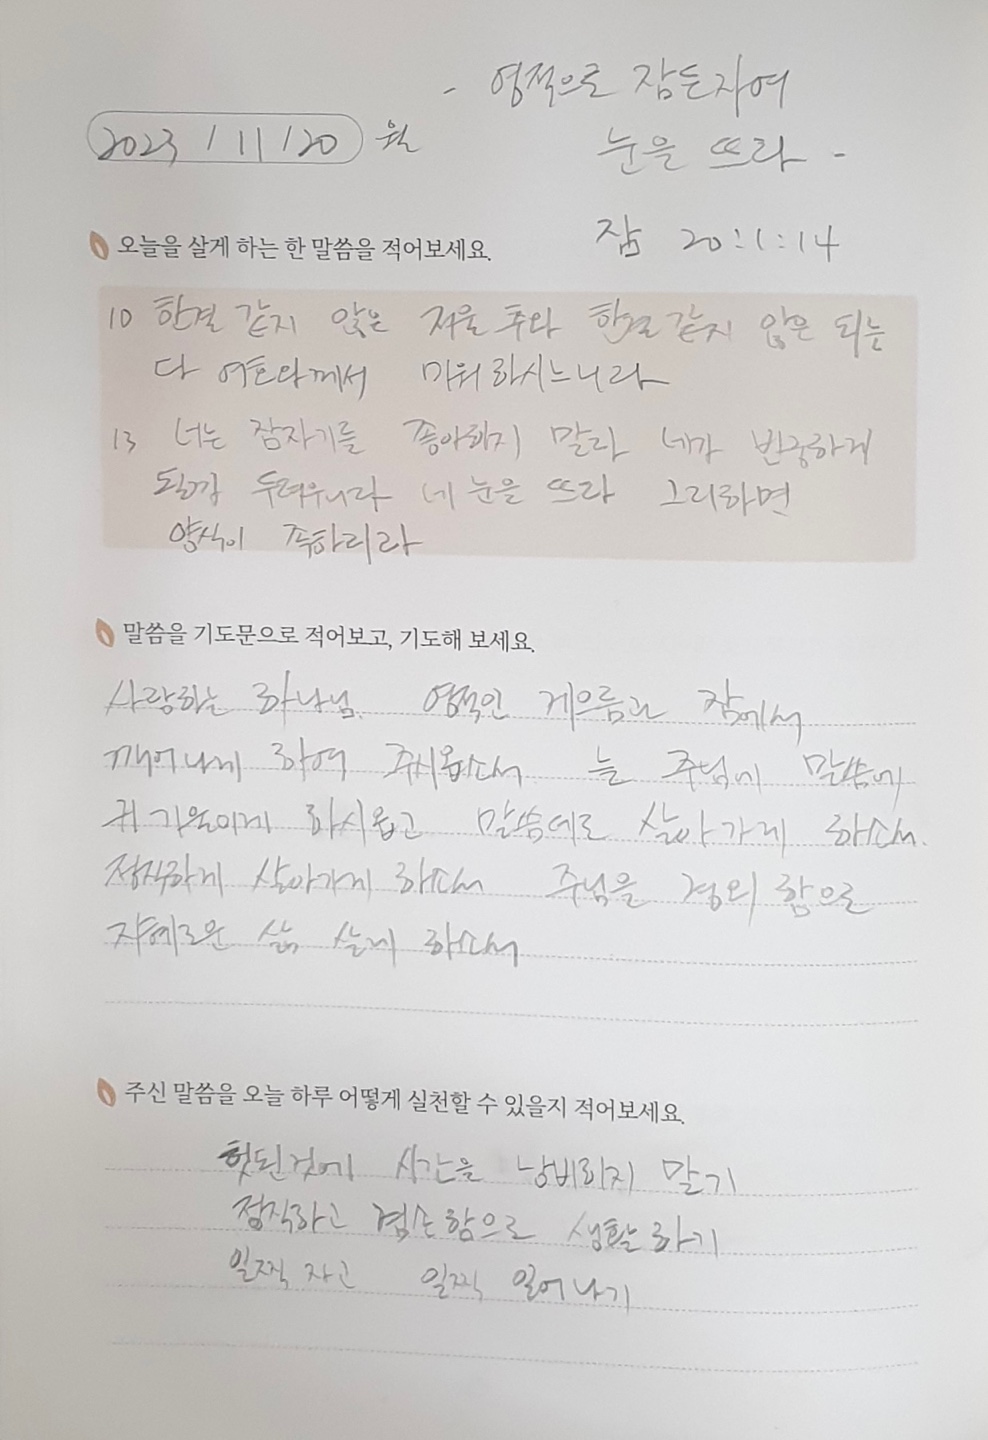 - 영적으로 잠든자여
2023 / 11 / 20 월
눈을 뜨라 -
잠 20:1:14
오늘을 살게 하는 한 말씀을 적어보세요.
10 한결 같지 않은 저울 추와 한결같지 않은 되는
다 여호와께서 미워하시느니라
13 너는 잠자기를 좋아하지 말라 네가 빈궁하게
될까 두려우니라 네 눈을 뜨라 그리하면
양식이 족하리라
말씀을 기도문으로 적어보고, 기도해 보세요.
사랑하는 하나님. 영적인 게으름과 잠에서
깨어나게 하여 주시옵소서 늘 주님에 말씀에
귀 기울이게 하시옵고 말씀데로 살아가게 하소서.
정직하게 살아가게 하소서 주님을 경외함으로
지혜로운 삶 살게 하소서
주신 말씀을 오늘 하루 어떻게 실천할 수 있을지 적어보세요.
헛된것에 시간을 낭비하지 말기
정직하고 겸손함으로 생활하기
일찍 자고 일찍 일어나기